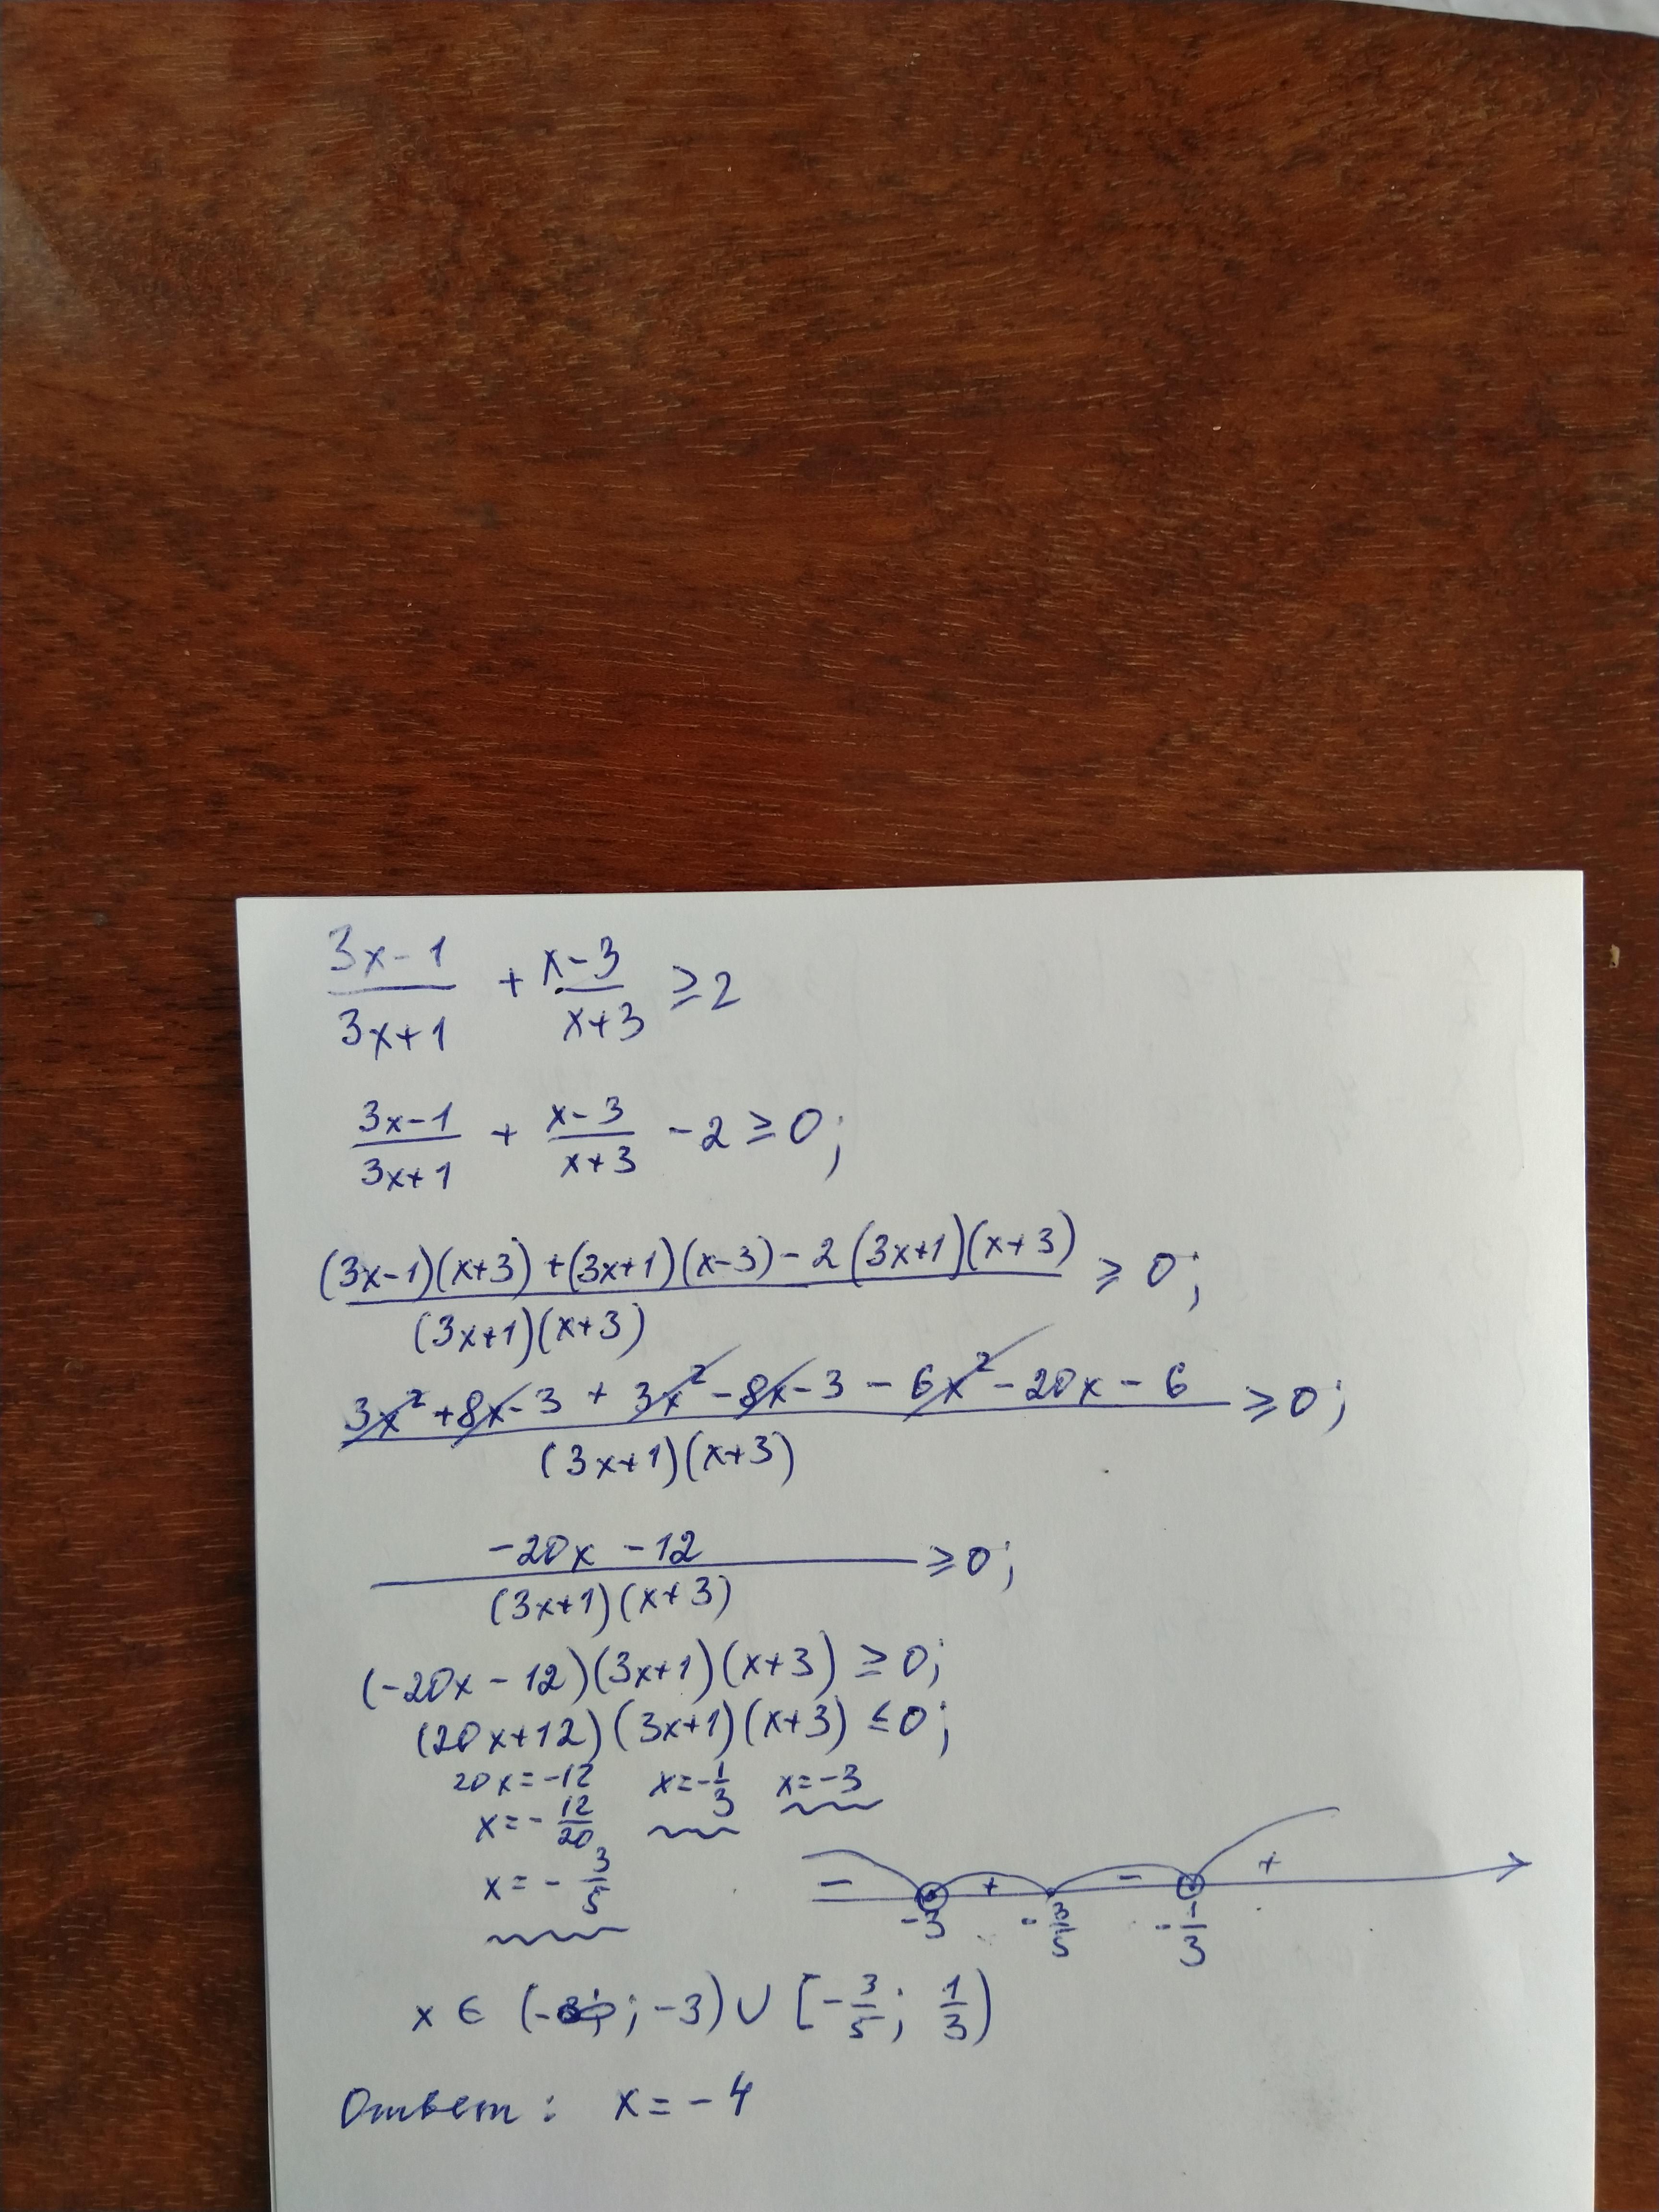 (3x-1)/(3x+1) + (x-3)/(x+3) ≥ 2
(3x-1)/(3x+1) + (x-3)/(x+3) - 2 ≥ 0;
((3x-1)(x+3) + (3x+1)(x-3) - 2(3x+1)(x+3))/((3x+1)(x+3)) ≥ 0;
(3x² + 8x - 3 + 3x² - 8x - 3 - 6x² - 20x - 6)/((3x+1)(x+3)) ≥ 0;
(-20x - 12)/((3x+1)(x+3)) ≥ 0;
(-20x - 12)(3x+1)(x+3) ≥ 0;
(20x+12)(3x+1)(x+3) ≤ 0;
20x = -12 x = -1/3 x = -3
x = -12/20
x = -3/5
- + - +
-3 -3/5 -1/3
x ∈ (-∞; -3) ∪ [-3/5; 1/3)
Ответ: x = -4